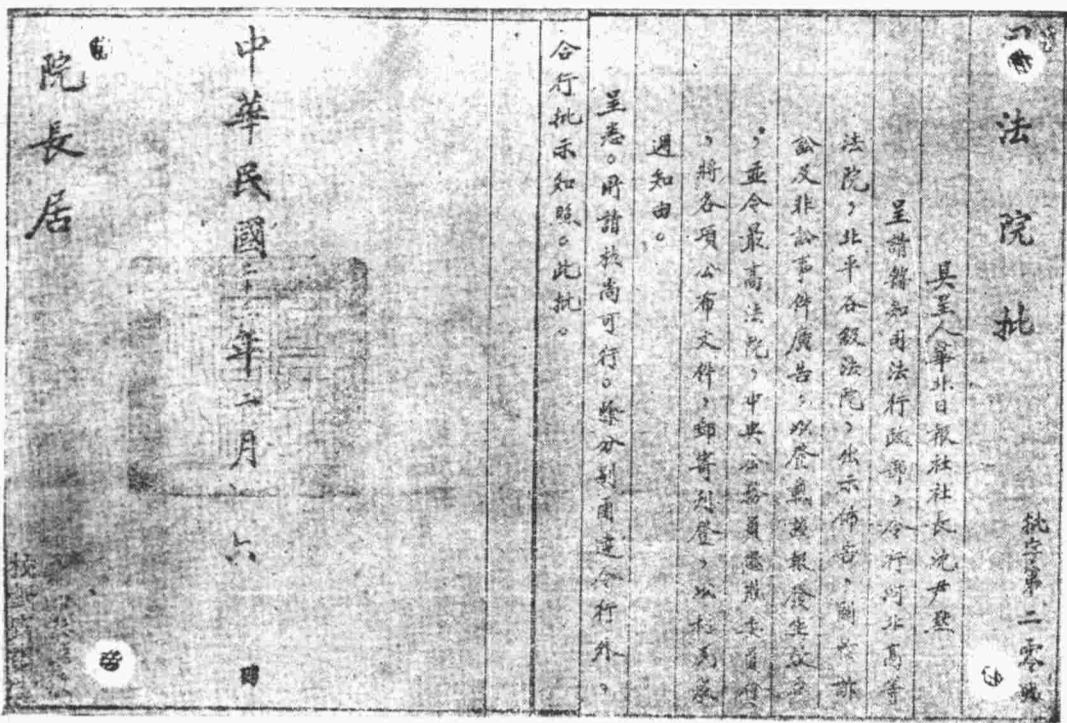 司法院批
批字第二零號
具呈人華北日報社社長沈尹默
呈請轉知司法行政部，令行河北高等
法院，北平各級法院，出示佈告，關於訴
訟及非訟事件廣告，以登載該報發生效力
，並令最高法院，中央公務員懲戒委員會
，將各項公布文件，郵寄刊登，以
週知由。
呈悉。所請核尚可行。除分別函達令行外，
合行批示如照。此批。
中華民國二十 年二月 六
院長居